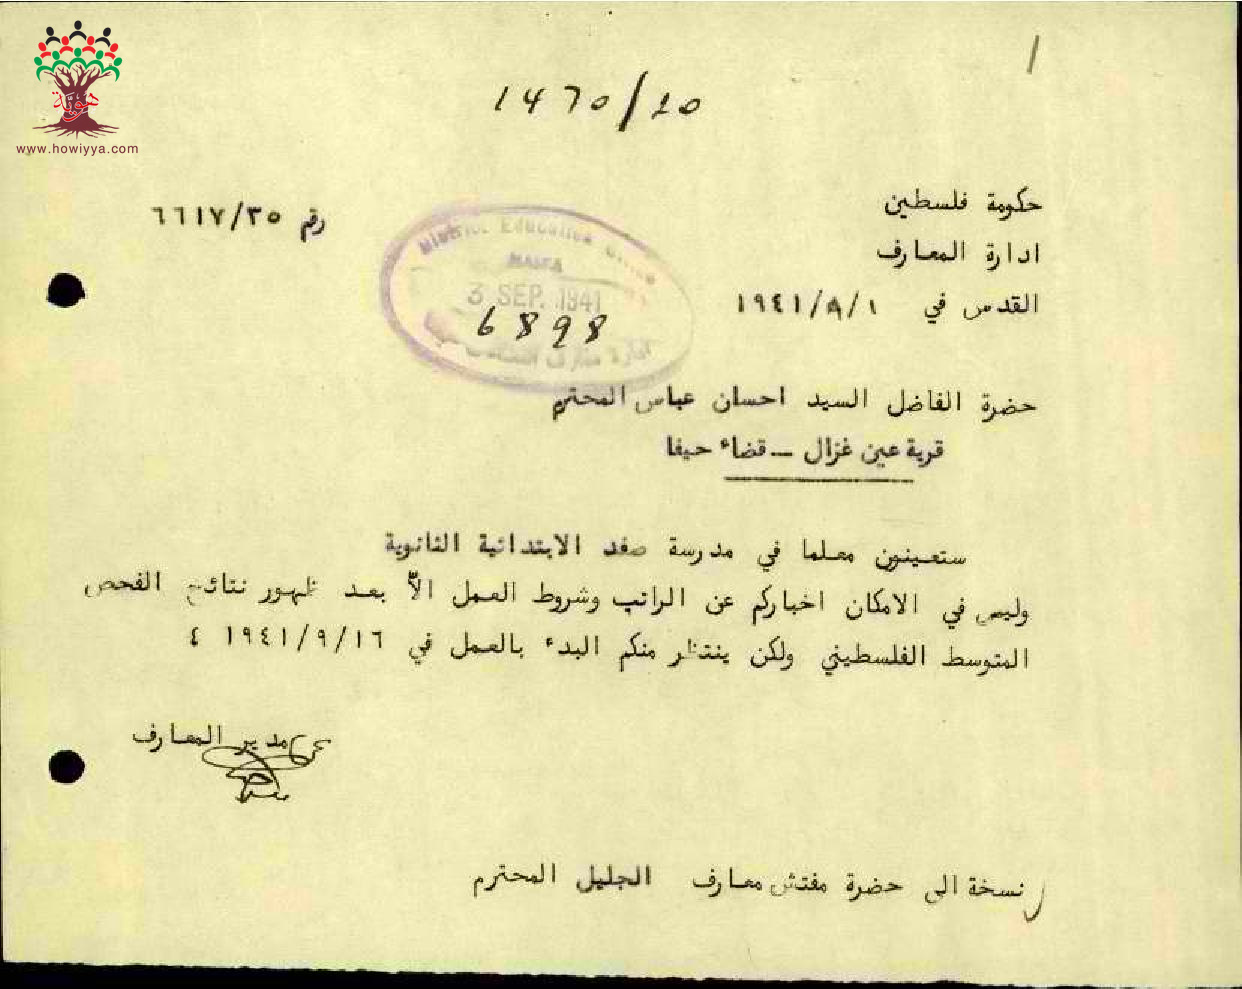 هوية
www.howiyya.com
1470/20
حكومة فلسطين
رقم ٦٦١٧/٣٥
ادارة المعارف
القدس في ١/٨/١٩٤١
District Education Office
HAIFA
3 SEP. 1941
6898
حضرة الفاضل السيد احسان عباس المحترم
قرية عين غزال – قضاء حيفا
ستعينون معلما في مدرسة صفد الابتدائية الثانوية
وليس في الامكان اخباركم عن الراتب وشروط العمل الاّ بعد ظهور نتائج الفحص
المتوسط الفلسطيني ولكن ينتظر منكم البدء بالعمل في ١٦/٩/١٩٤١ ٤
مدير المعارف
نسخة الى حضرة مفتش معارف الجليل المحترم